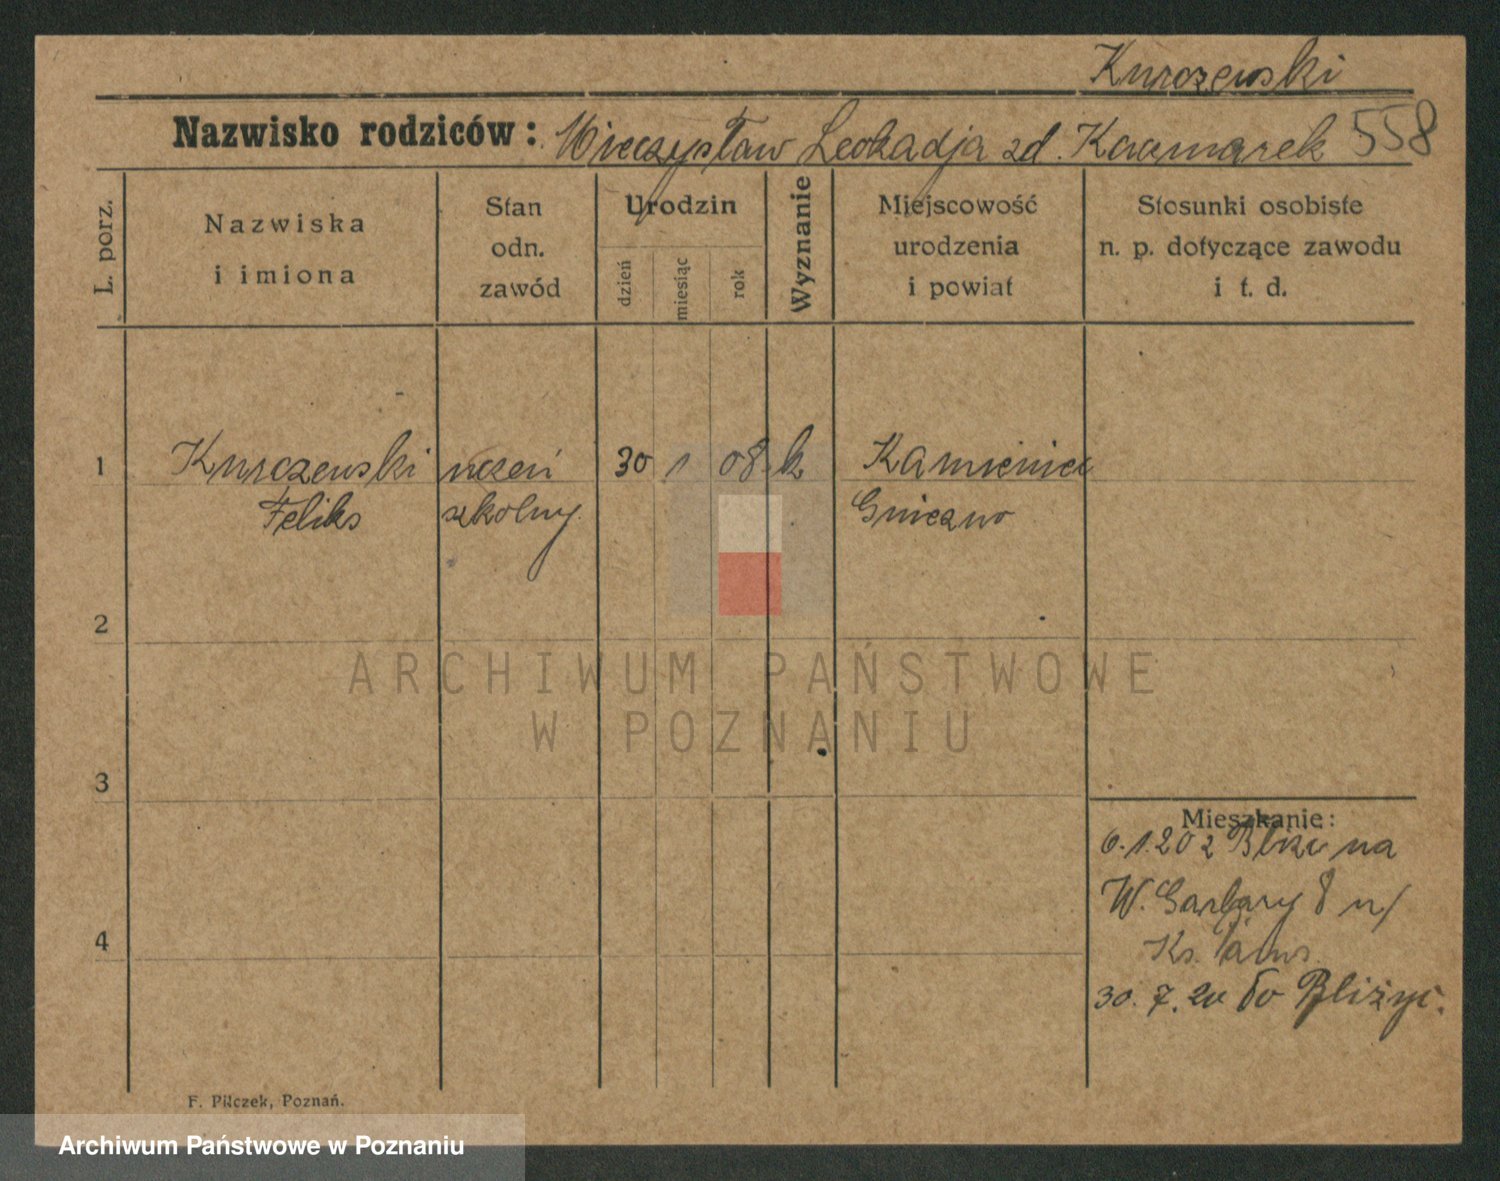 Kurczewski
Nazwisko rodziców: Mieczysław Leokadja zd. Kaczmarek 558
L. porz.
Nazwiska
i imiona
Stan
odn.
zawód
Urodzin
dzień
miesiąc
rok
Wyznanie
Miejscowość
urodzenia
i powiat
Stosunki osobiste
n. p. dotyczące zawodu
i t. d.
1 Kurczewski uczeń 30 1 08 k Kamieniec
Feliks szkolny Gniezno
2
3
4
Mieszkanie:
6.1.20 z na
W. Garbary 8 u/
Ks.
30. 7. 20 do Bliżyc.
F. Pilczek, Poznań.
ARCHIWUM PAŃSTWOWE
W POZNANIU
Archiwum Państwowe w Poznaniu